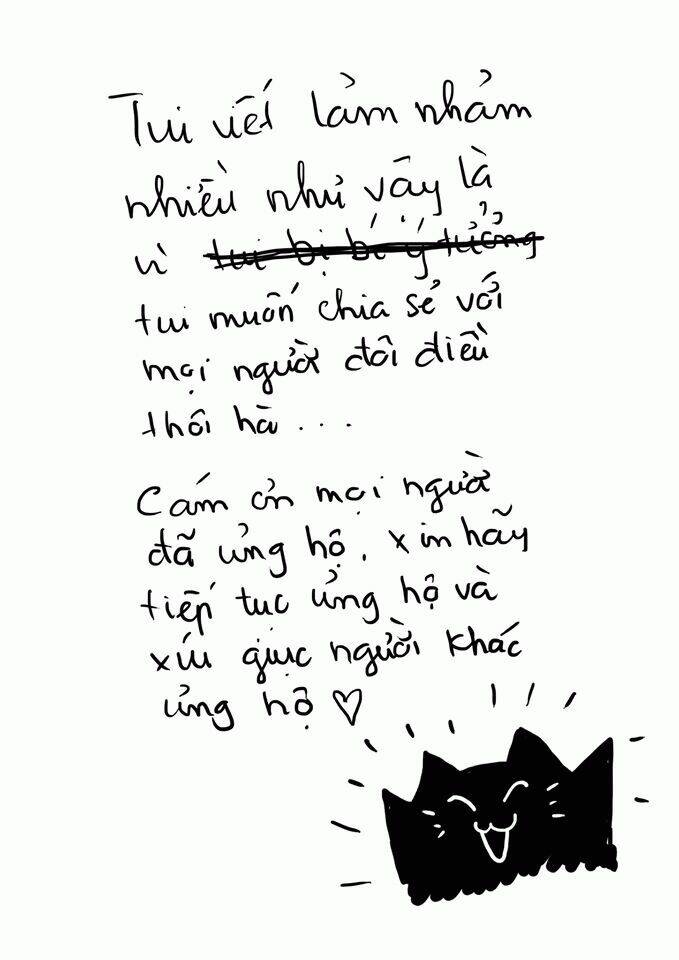 Tui viết lảm nhảm
nhiều như vậy là
vì tui bị bí ý tưởng
tui muốn chia sẻ với
mọi người đôi điều
thôi hà...
Cám ơn mọi người
đã ủng hộ, xin hãy
tiếp tục ủng hộ và
xíu giục người khác
ủng hộ ♡